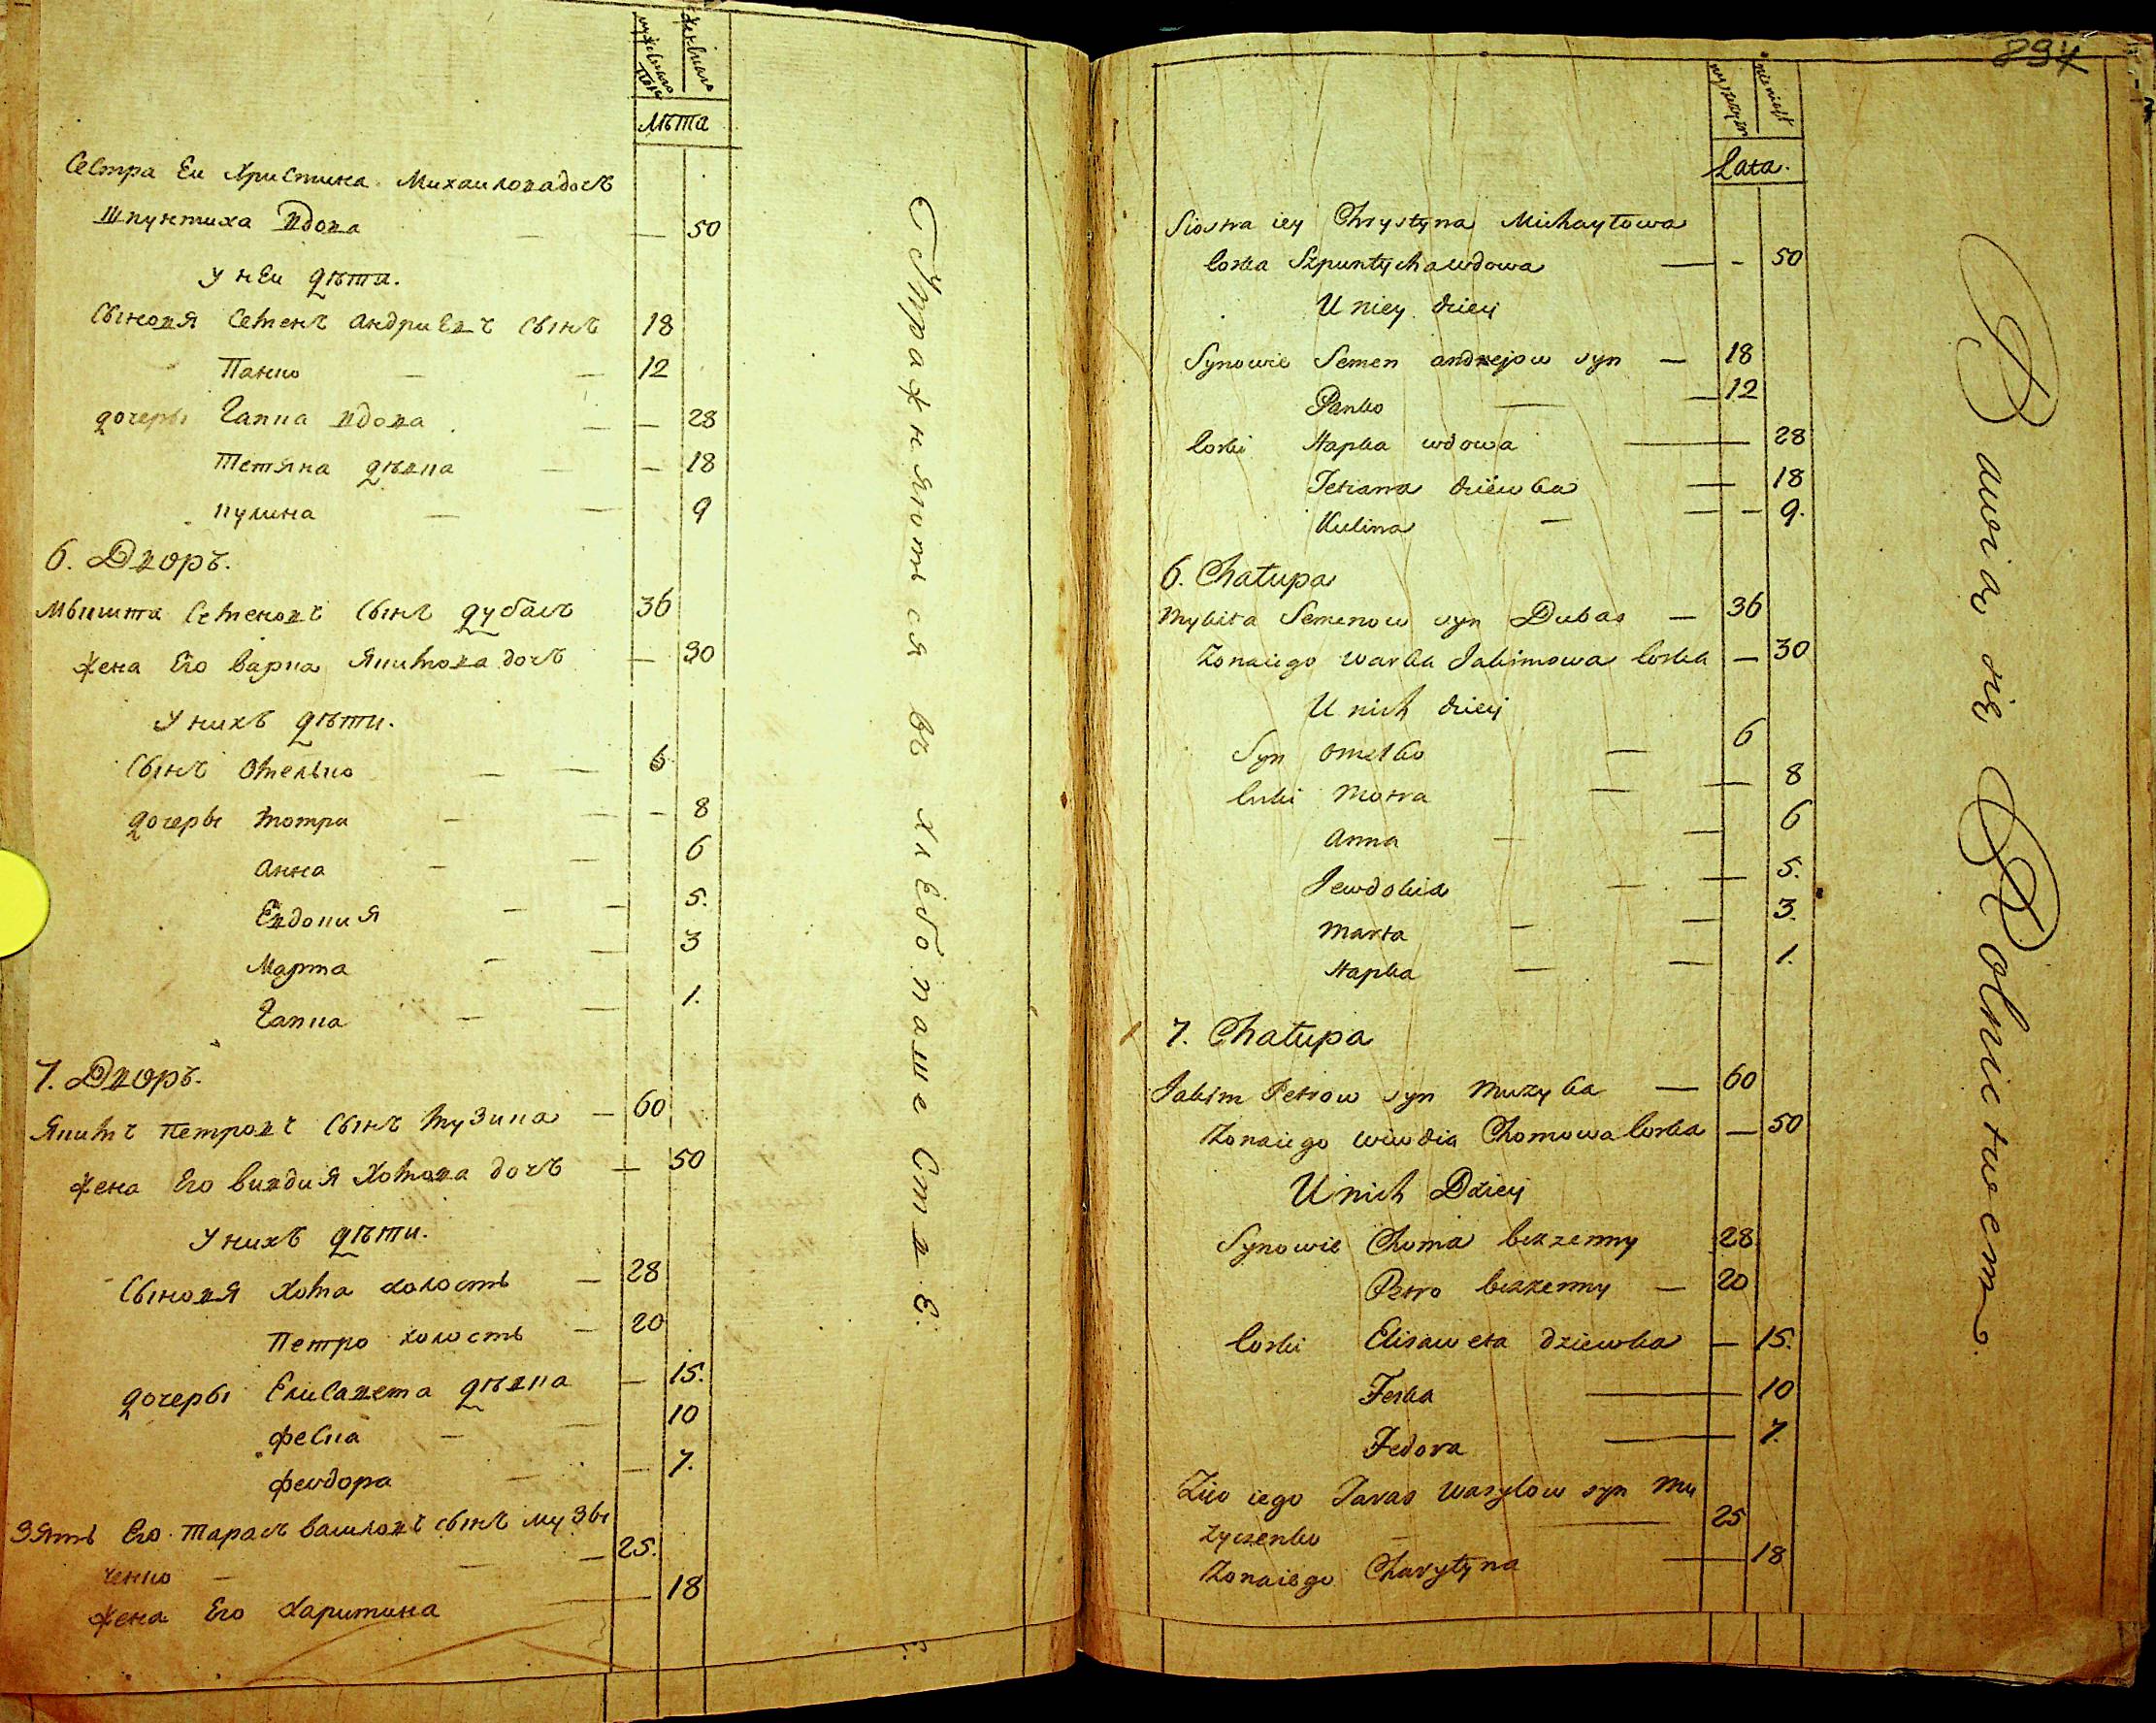 мужескаго пола
женскаго
лѣта
Сестра Еи Христина Михаиловадочь
Шпунтиха вдова — 50
У неи дѣти.
Сыновя Семенъ андриевъ сынъ 18
Панко — — 12
дочеры Гапка вдова — — 28
Тетяна дѣвка — 18
кулина — — 9
6. Дворъ.
Мыкита Семеновъ сынъ дубасъ 36
жена Его варка Якимова дочь — 30
У нихъ дѣти.
Сынъ Омелько — — 6
дочеры мотра — — - 8
анна — — 6
Евдокия — — 5.
Марта — — 3
Гапка — — 1.
7. Дворъ.
Якимъ Петровъ сынъ музика — 60
жена Его вивдия Хомова дочь — 50
У нихъ дѣти.
Сыновя Хома холость — 28
Петро холость — 20
дочеры Елисавета дѣвка — 15.
феска — 10
феодора — — 7.
Зять Его Тарасъ василовъ сынъ музы
ченко — — 25.
жена Его Харитина — 18
Упражняются въ хлебопашестве.
894
męzczyzn
niewiast
Lata.
Siostra iey Chrystyna Michayłowa
corka Szpuntycha wdowa — - 50
U niey dzieci
Synowie Semen andrzejow syn — 18
Panko — — 12
corki Hapka wdowa — 28
Tetiana dziewka — 18
Kulina — — - 9.
6. Chałupa
Mykita Semenow syn Dubas — 36
Zonaiego warka Jakimowa corka — 30
U nich dzieci
Syn omelko — 6
corki Motra — — 8
anna — — 6
Jewdokia — — 5.
Marta — — 3.
Hapka — — 1.
7. Chałupa
Jakim Petrow syn muzyka — 60
Zonaiego wiwdia Chomowa corka — 50
U nich Dzieci
Synowie Choma bezzenny 28
Petro bezzenny — 20
corki Elisaweta dziewka — 15.
Feska — 10
Fedora — 7.
Zięc iego Taras wasylow syn mu
zyczenko — — 25
Zonaiego Charytyna — 18
Bawią się Rolnictwem